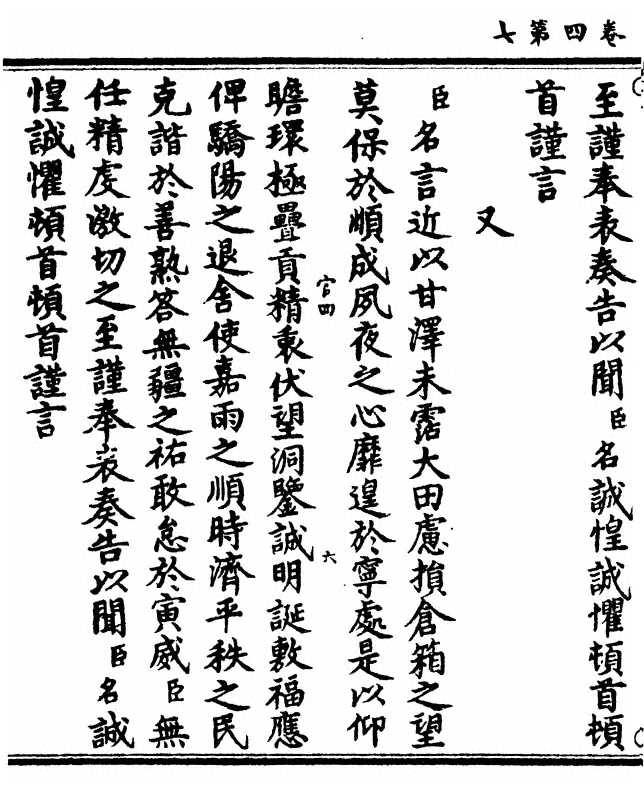 卷四第七
至謹奉表奏告以聞臣名誠惶誠懼頓首頓
首謹言
又
臣名言近以甘澤未霑大田慮損倉箱之望
莫保於順成夙夜之心靡遑於寧處是以仰
瞻環極疊貢精衷伏望洞鑒誠明誕敷福應
官四
六
俾驕陽之退舍使嘉雨之順時濟平秩之民
克諧於善熟答無疆之祐敢怠於寅威臣無
任精虔激切之至謹奉表奏告以聞臣名誠
惶誠懼頓首頓首謹言